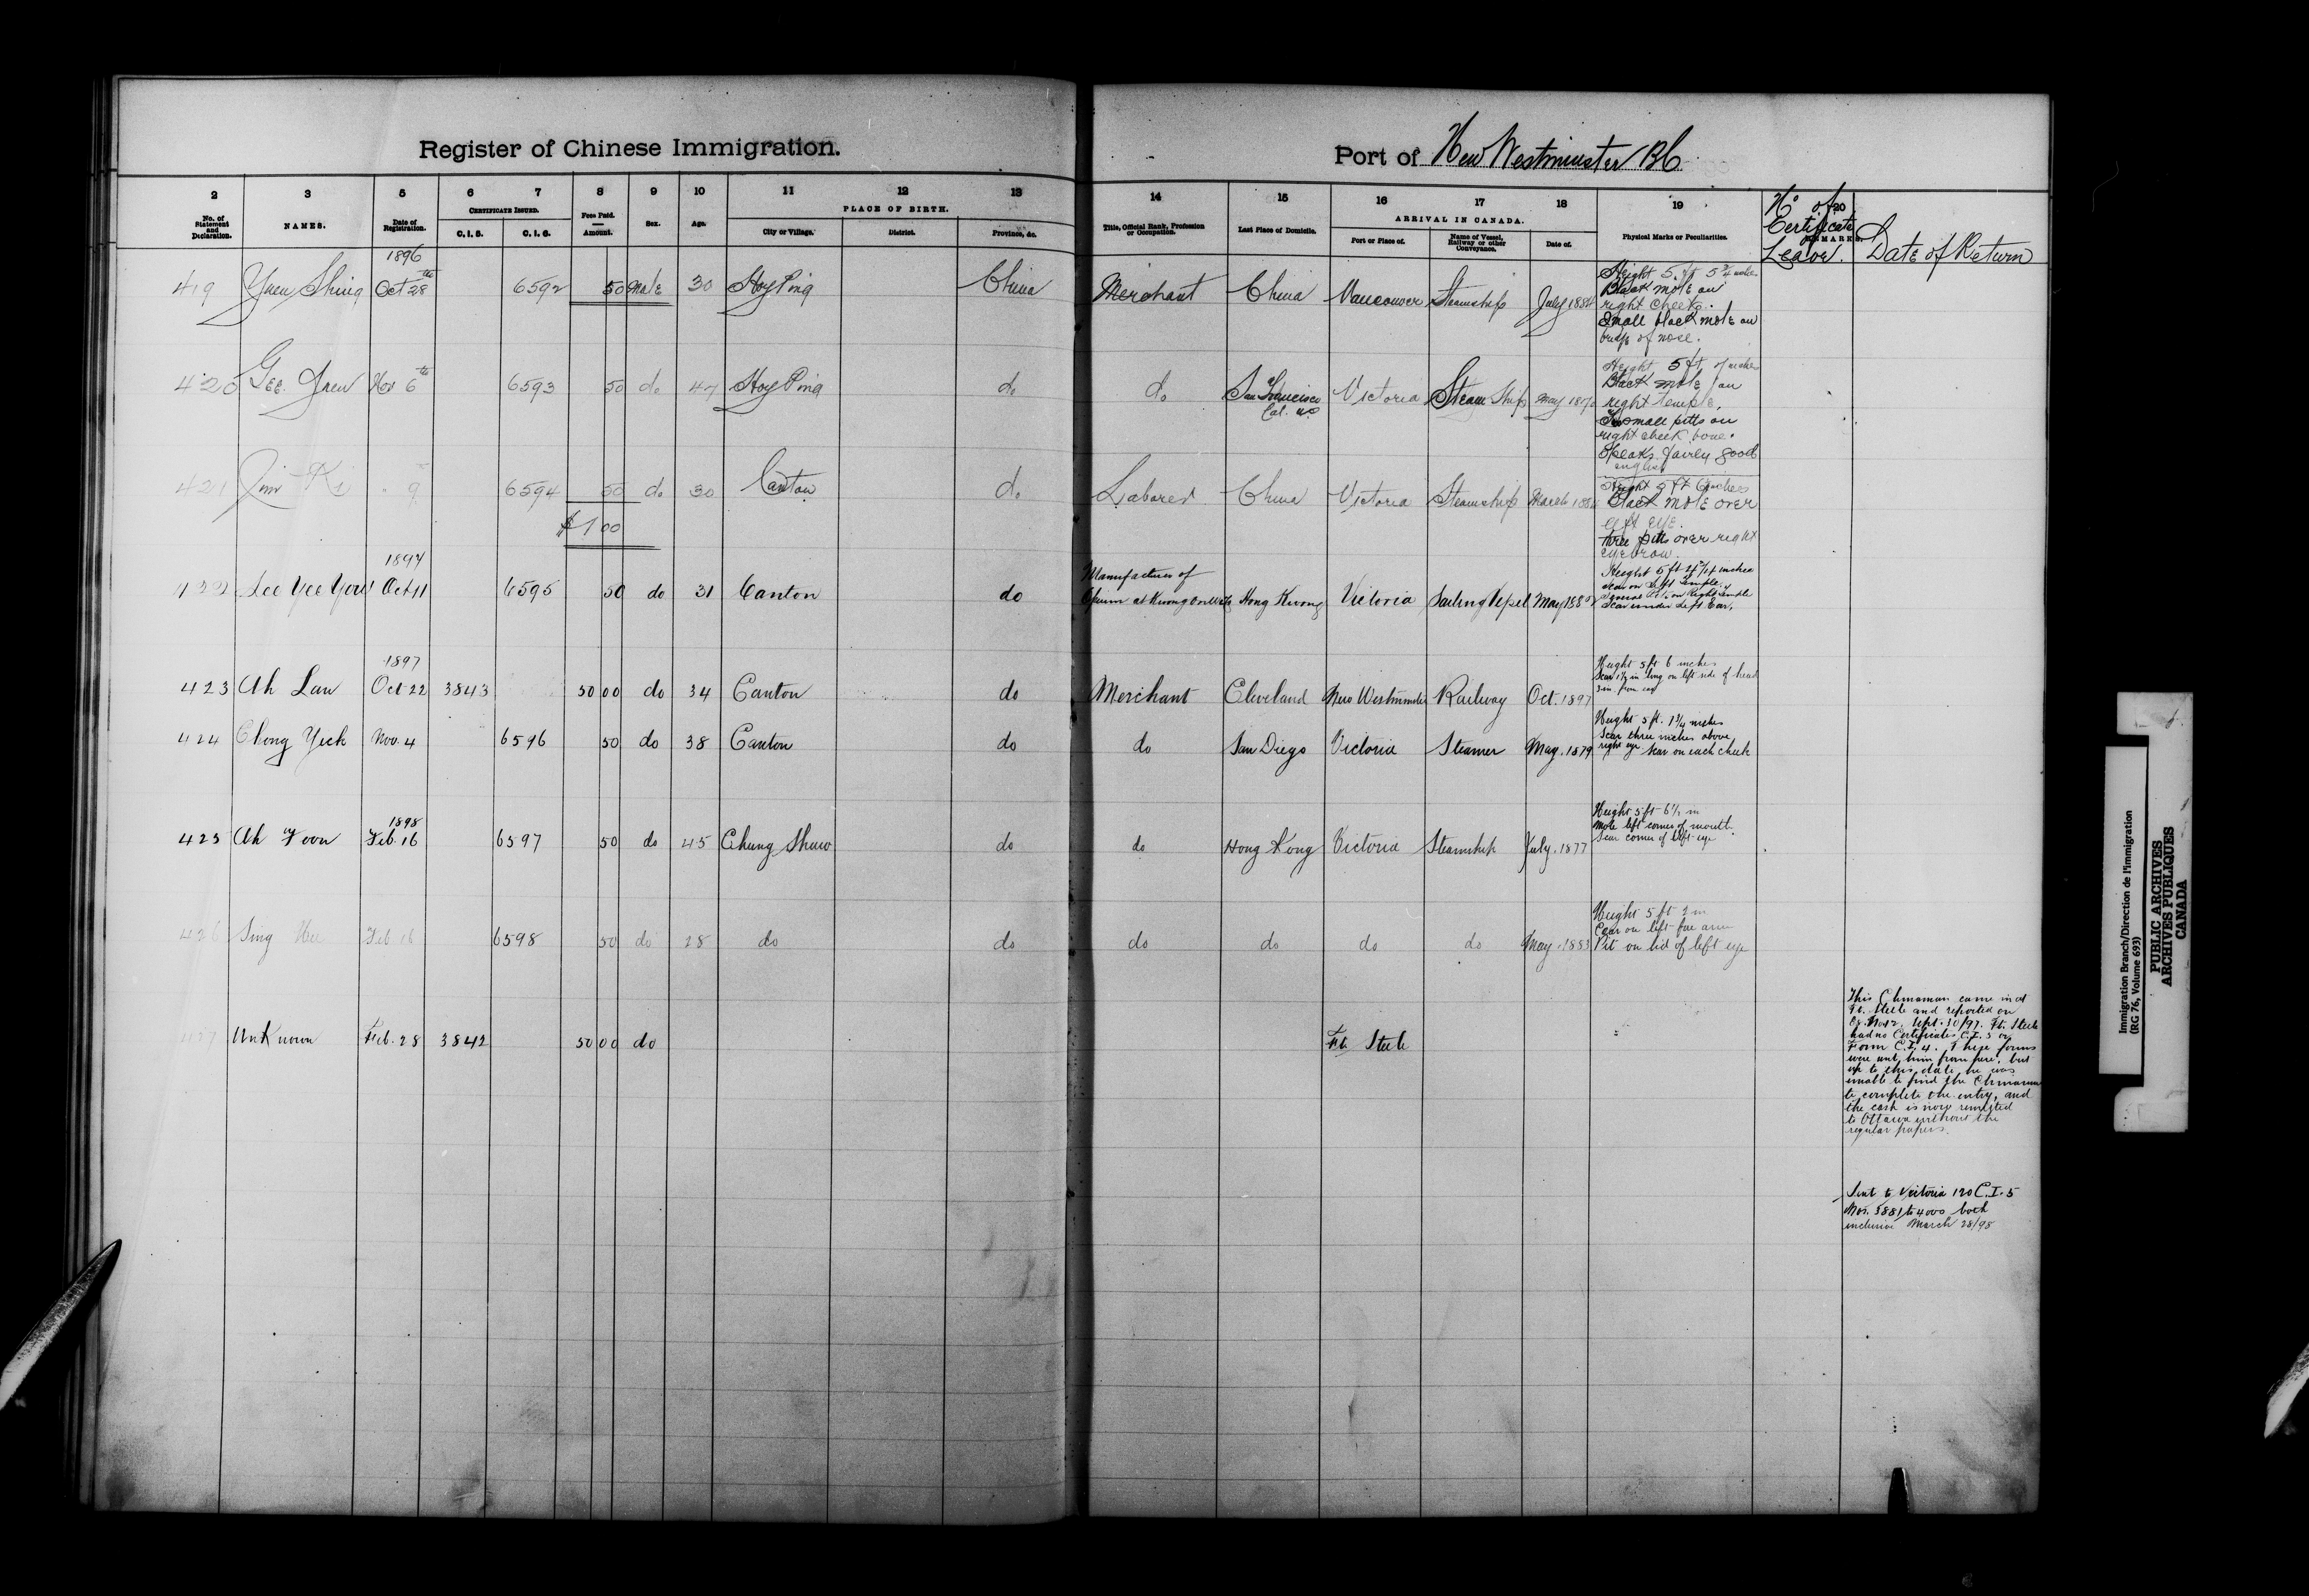 Register of Chinese Immigration.
Port of New Westminster BC
2 3 5 6 7 8 9 10 11 12 13 14 15 16 17 18 19 20
No. of Statement and Declaration. NAMES. Date of Registration. CERTIFICATE ISSUED. C. I. 5. C. I. 6. Fees Paid. Amount. Sex. Age. PLACE OF BIRTH. City or Village. District. Province, &c.
Title, Official Rank, Profession or Occupation. Last Place of Domicile. ARRIVAL IN CANADA. Port or Place of. Name of Vessel, Railway or other Conveyance. Date of. Physical Marks or Peculiarities. REMARKS.
No of Certificate of Leave. Date of Return
1896
419 Yuen Shing Oct 28th 6592 50 Male 30 Hoy Ping China Merchant China Vancouver Steamship July
Height 5 ft 5 3/4 inches
Black mole on
right cheek.
Small black mole on
bridge of nose.
420 Gee Yuen Nov 6th 6593 50 do 47 Hoy Ping do do San Francisco Cal. Victoria Steam Ship May
Height 5 ft inches
Black mole on
right temple,
small pitts on
right cheek bone.
Speaks fairly good
english
421 Jim Ki 9 6594 50 do 30 Canton do Laborer China Victoria Steamship March
Height 5 ft inches
Black mole over
left eye.
three pitts over right
eyebrow.
$1 00
1897
422 Lee Yee You Oct 11 6595 50 do 31 Canton do Manufacturer of Opium at Hong Kong Victoria Sailing Vessel May
Height 5 ft inches
Scar on Left Temple.
Several Pits on Right Temple
Scar under Left Ear.
1897
423 Ah Lau Oct 22 3843 50 00 do 34 Canton do Merchant Cleveland New Westminster Railway Oct. 1897
Height 5 ft 6 inches
Scar 1½ in long on left side of head
3 in. from ear
424 Chong Yick Nov. 4 6596 50 do 38 Canton do do San Diego Victoria Steamer May. 1879
Height 5 ft. 1 3/4 inches
Scar three inches above
right eye. Scar on each cheek
1898
425 Ah Foon Feb. 16 6597 50 do 45 Chung Shaw do do Hong Kong Victoria Steamship July. 1877
Height 5 ft 6½ in
Mole left corner of mouth.
Scar corner of left eye
426 Sing Feb 16 6598 50 do 28 do do do do do do May. 1883
Height 5 ft 2 in
Scar on left fore arm
Pit on lid of left eye
427 Unknown Feb. 28 3842 50 00 do Ft. Steele
This Chinaman came in at
Ft. Steele and reported on
Sept. 30/97. Ft. Steele
had no Certificates C.I. 5 or
Form C.I. 4. These forms
were sent him from here, but
up to this date he was
unable to find the Chinaman
to complete the entry, and
the cash is now remitted
to Ottawa without the
regular papers.
Sent to Victoria 120 C.I. 5
Nos. 3881 to 4000 both
inclusive March 28/98
Immigration Branch/Direction de l'immigration
(RG 76, Volume 693)
PUBLIC ARCHIVES
ARCHIVES PUBLIQUES
CANADA